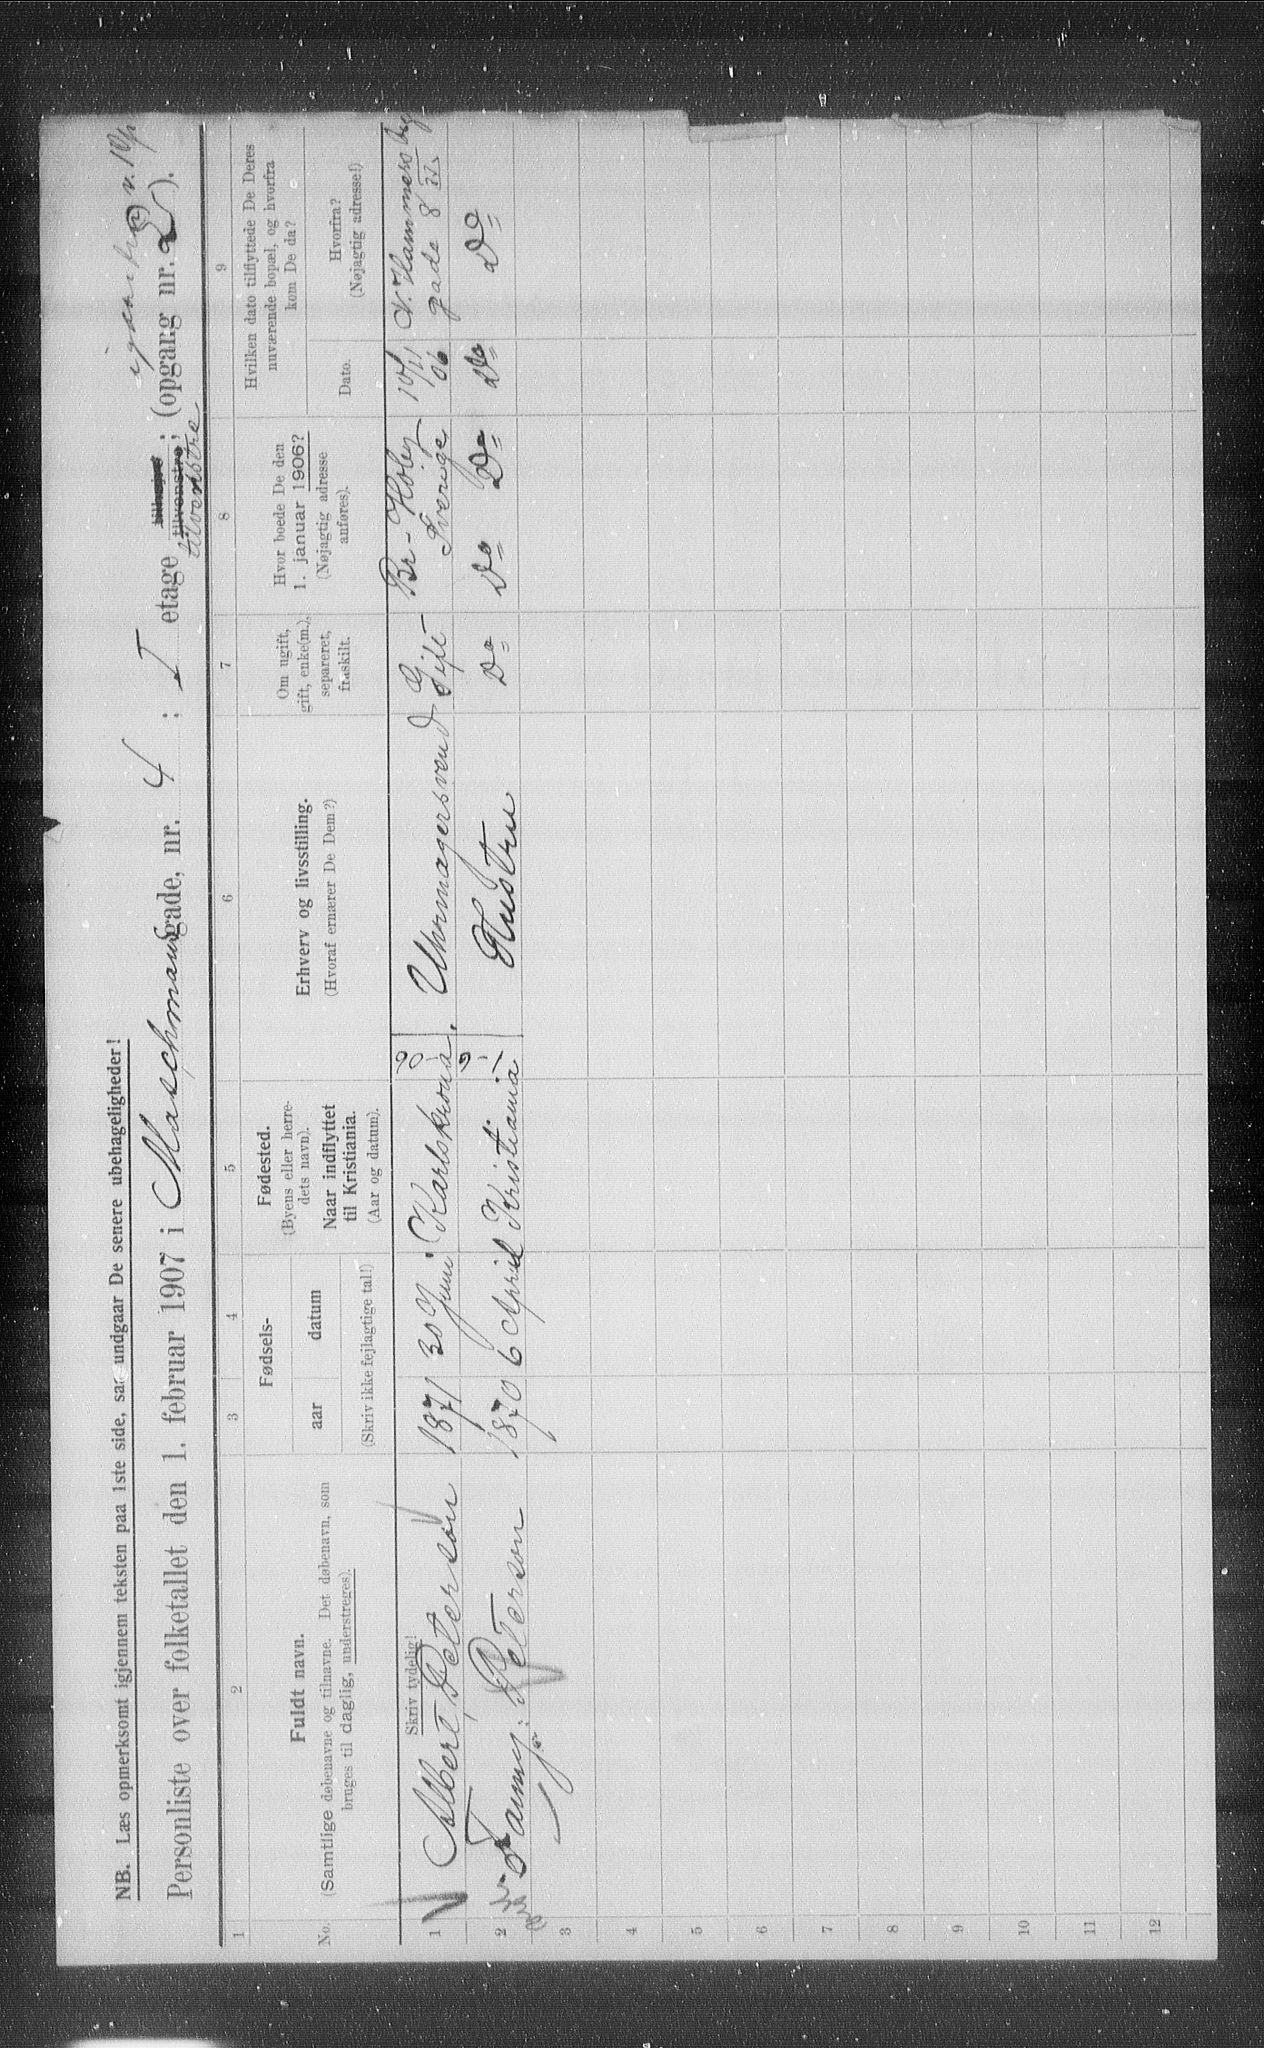 NB. Læs opmerksomt igjennem teksten paa 1ste side, saa undgaar De senere ubehageligheder!
Personliste over folketallet den 1. februar 1907 i Maschmansgade, nr. 4 ; I etage tilhøjre tilvenstre ; (opgang nr. 2).
tilvenstre
1 2 3 4 5 6 7 8 9
No.
Fuldt navn.
(Samtlige døbenavne og tilnavne. Det døbenavn, som
bruges til daglig, understreges).
Fødsels-
aar datum
(Skriv ikke fejlagtige tal!)
Fødested.
(Byens eller herre-
dets navn).
Naar indflyttet
til Kristiania.
(Aar og datum).
Erhverv og livsstilling.
(Hvoraf ernærer De Dem?)
Om ugift,
gift, enke(m.),
separeret,
fraskilt.
Hvor boede De den
1. januar 1906?
(Nøjagtig adresse
anføres).
Hvilken dato tilflyttede De Deres
nuværende bopæl, og hvorfra
kom De da?
Dato.
Hvorfra?
(Nøjagtig adresse!)
Skriv tydelig!
1 Albert Peterson 1871 30 Juni Karlskrona. Uhrmagersvend Gift Br-Hoby Sverige 10/11 06 N. Hammersborg gade 8 IV.
2 Fanny Peterson 1870 6 April Kristiania Hustru Do Do Do Do Do
3
4
5
6
7
8
9
10
11
12